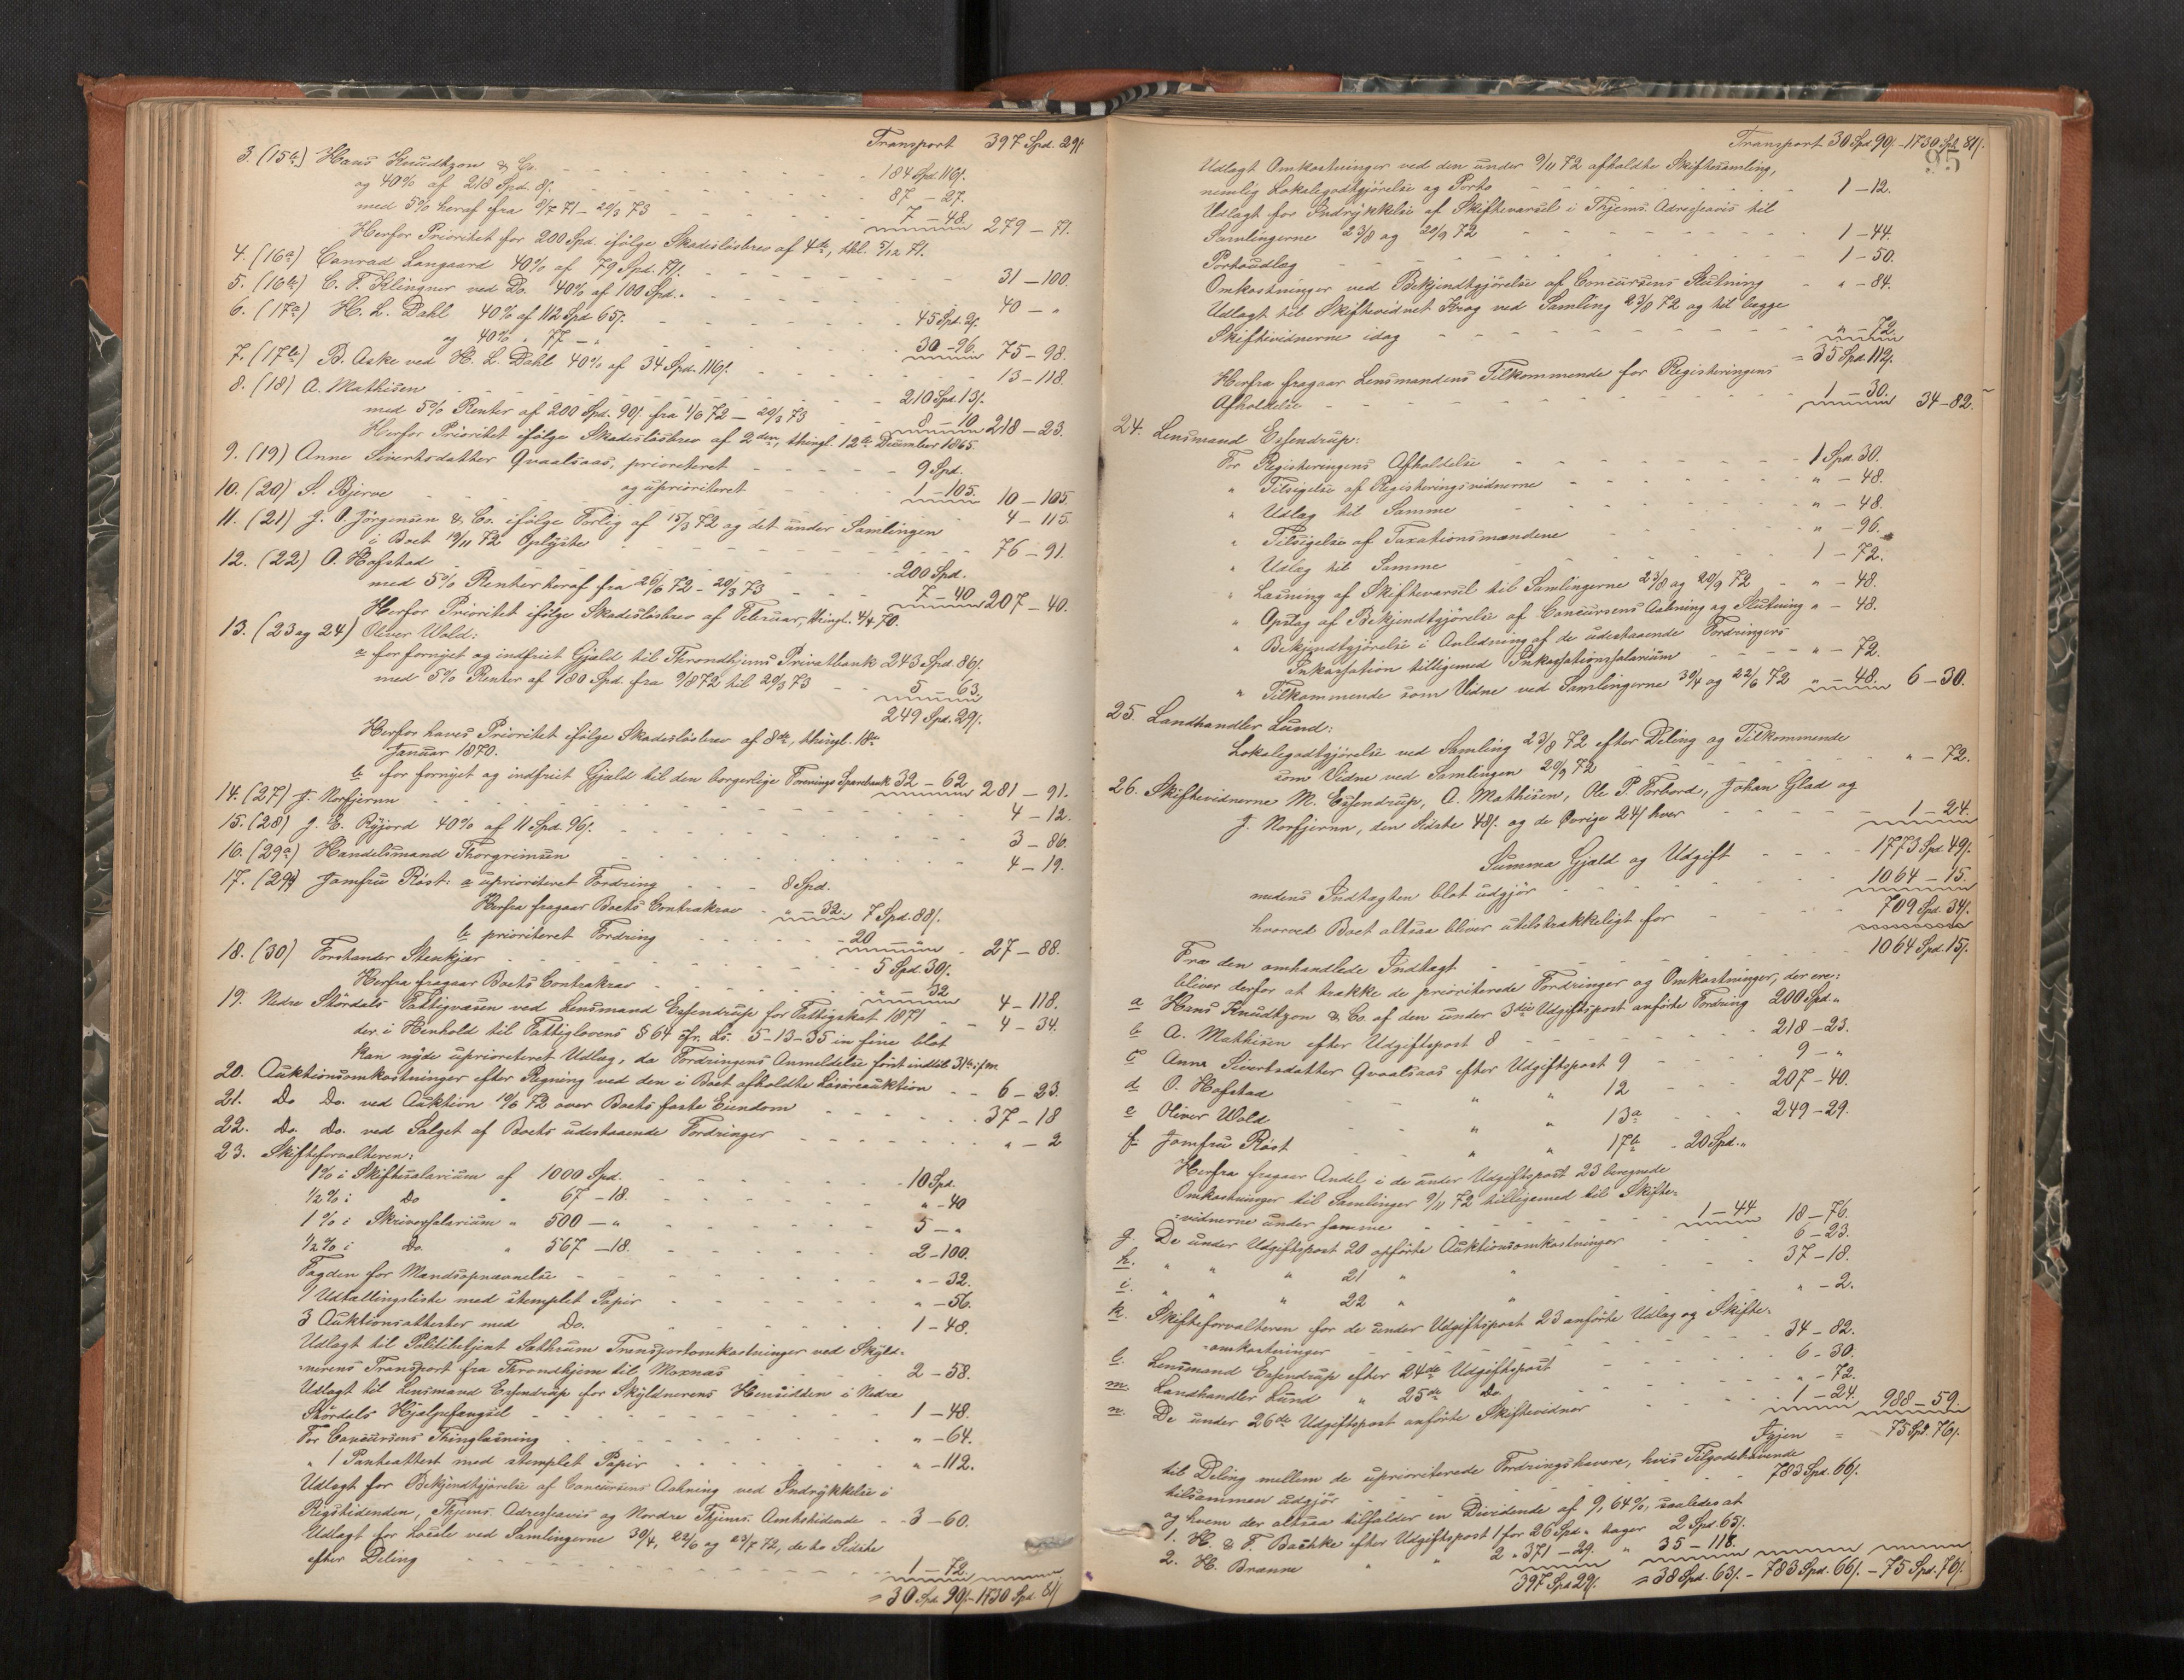 Transport 397 Spd. 29/.
3. (15de) Hans Knudtzon & Co. 184 Spd. 116/.
og 40% af 218 Spd. 8/. 87 - 27.
med 5% heraf fra 8/7 71 - 20/3 73 7 - 48. 279 - 71.
Herfor Prioritet for 200 Spd. ifølge Skadesløsbrev af 4de, thl. 5/12 71.
4. (16a) Conrad Langaard 40% af 79 Spd. 71/. 31 - 100.
5. (16b) C. F. Klingner ved Do. 40% af 100 Spd. 40 - "
6. (17a) H. L. Dahl 40% af 112 Spd. 65/. 45 Spd. 2/.
og 40% " 77 - " 30 - 96. 75 - 98.
7. (17b) B. Aske ved H. L. Dahl 40% af 34 Spd. 116/. 13 - 118.
8. (18) A. Mathisen 210 Spd. 13/.
med 5% Renter af 200 Spd. 90/. fra 1/6 72 - 20/3 73 8 - 10 218 - 23.
Herfor Prioritet ifølge Skadesløsbrev af 2den, thingl. 12te December 1865.
9. (19) Anne Sivertsdatter Qvaalsaas, prioriteret 9 Spd.
og uprioriteret 1 - 105. 10 - 105
10. (20) S. Bjerve 4 - 115.
11. (21) J. O. Jørgensen & Co. ifølge Forlig af 15/3 72 og det under Samlingen
i Boet 19/11 72 Oplyste 76 - 91.
12. (22) O. Hofstad 200 Spd.
med 5% Renter heraf fra 26/6 72 - 20/3 73 7 - 40 207 - 40.
Herfor Prioritet ifølge Skadesløsbrev af Februar, thingl. 4/4 70.
13. (23 og 24) Oliver Wold:
a for fornyet og indfriet Gjæld til Throndhjems Privatbank 243 Spd. 86/.
med 5% Renter af 180 Spd. fra 9/8 72 til 20/3 73 5 - 63.
249 Spd. 29/.
Herfor haves Prioritet ifølge Skadesløsbrev af 8de, thingl. 18de
Januar 1870.
b for fornyet og indfriet Gjæld til den borgerlige Forenings Sparebank 32 - 62 281 - 91.
14. (27) J. Norfjerun 4 - 12.
15. (28) J. E. Ryjord 40% af 11 Spd. 96/. 3 - 86.
16. (29a) Handelsmand Thorgrimsen 4 - 19.
17. (29b) Jomfru Røst: a uprioriteret Fordring 8 Spd.
Herfra fragaar Boets Contrakrav " - 32. 7 Spd. 88/.
b prioriteret Fordring 20 - " 27 - 88.
18. (30) Forstander Stenkjær 5 Spd. 30/.
Herfra fragaar Boets Contrakrav " - 32 4 - 118.
19. Nedre Stördals Fattigvæsen ved Lensmand Essendrup for Fattigskat 1871 4 - 34.
der i Henhold til Fattiglovens § 64 cfr. Ls. 5-13-35 in fine blot
kan nyde uprioriteret Udlæg, da Fordringens Anmeldelse först indlöb 31te i f. m.
20. Auktionsomkostninger efter Regning ved den i Boet afholdte Løsøreauktion 6 - 23.
21. Do Do. ved Auktion 10/6 72 over Boets faste Eiendom 37 - 18
22. Do. Do. ved Salget af Boets udestaaende Fordringer " - 2
23. Skifteforvalteren:
1% i Skiftesalarium af 1000 Spd. 10 Spd.
1/2% i Do " 67 - 18. " - 40
1% i Skriversalarium " 500 - " 5 - "
1/2% i Do. " 567 - 18. 2 - 100.
Fogden for Mandsopnævnelse " - 32.
1 Udtællingsliste med stemplet Papir " - 56.
3 Auktionsattester med Do. 1 - 48.
Udlagt til Politibetjent Sæthrum Transportomkostninger ved Skyld-
-nerens Transport fra Throndhjem til Moxnæs 2 - 58.
Udlagt til Lensmand Essendrup for Skyldnerens Hensidden i Nedre
Stördals Hjælpefængsel 1 - 48.
For Concursens Thinglæsning " - 64.
" 1 Panteattest med stemplet Papir " - 112.
Udlagt for Bekjendtgjørelse af Concursens Aabning ved Indrykkelse i
Rigstidenden, Thjems. Adresseavis og Nordre Thjems. Amtstidende 3 - 60.
Udlagt for Locale ved Samlingerne 30/4, 22/6 og 23/7 72, de to Sidste
efter Deling 1 - 72.
= 30 Spd. 90/. - 1730 Spd. 81/.
95
Transport 30 Spd. 90/. - 1730 Spd. 81/.
Udlagt Omkostninger ved den under 9/11 72 afholdte Skiftesamling,
nemlig Lokalegodtgjörelse og Porto 1 - 12.
Udlagt for Indrykkelse af Skiftevarsel i Thjems. Adresseavis til
Samlingerne 23/8 og 20/9 72 1 - 44.
Portoudlæg 1 - 50.
Omkostninger ved Bekjendtgjörelse af Concursens Slutning " - 84.
Udlagt til Skiftevidnet Krog ved Samling 23/8 72 og til begge
Skiftevidnerne idag " - 72.
= 35 Spd. 112/.
Herfra fragaar Lensmandens Tilkommende for Registeringens
Afholdelse 1 - 30. 34 - 82.
24. Lensmand Essendrup:
For Registeringens Afholdelse 1 Spd. 30.
" Tilsigelse af Registeringsvidnerne " - 48.
" Udlæg til Samme " - 48.
" Tilsigelse af Taxationsmændene " - 96.
" Udlæg til Samme 1 - 72.
" Læsning af Skiftevarsel til Samlingerne 23/8 og 20/9 72 " - 48.
" Opslag af Bekjendtgjörelse af Concursens Aabning og Slutning " - 48.
" Bekjendtgjörelse i Anledning af de udestaaende Fordringers
Inkassation tilligemed Inkassationssalarium " - 72.
" Tilkommende som Vidne ved Samlingerne 30/4 og 22/6 72 " - 48. 6 - 30.
25. Landhandler Lund:
Lokalegodtgjörelse ved Samling 23/8 72 efter Deling og Tilkommende
som Vidne ved Samlingen 20/9 72 " - 72.
26. Skiftevidnerne M. Essendrup, A. Mathisen, Ole P. Forbord, Johan Glad og
J. Norfjerun, den Sidste 48/. og de Øvrige 24/ hver 1 - 24.
Summa Gjæld og Udgift 1773 Spd. 49/.
medens Indtægten blot udgjör 1064 - 15.
hvorved Boet altsaa bliver utilstrækkeligt for 709 Spd. 34/.
Fra den omhandlede Indtægt 1064 Spd. 15/.
bliver derfor at trække de prioriterede Fordringer og Omkostninger, der ere:
a Hans Knudtzon & Co. af den under 3die Udgiftspost anförte Fordring 200 Spd. "
b A. Mathisen efter Udgiftspost 8 218 - 23.
c Anne Sivertsdatter Qvaalsaas efter Udgiftspost 9 9 - "
d O. Hofstad " " 12 207 - 40.
e Oliver Wold " " 13a 249 - 29.
f Jomfru Röst " " 17b 20 Spd. "
Herfra fragaar Andel i de under Udgiftspost 23 beregnede
Omkostninger til Samlinger 9/11 72 tilligemed til Skifte-
-vidnerne under samme 1 - 44 18 - 76.
g. De under Udgiftspost 20 opförte Auktionsomkostninger 6 - 23.
h. " " " 21 " " 37 - 18.
i. " " " 22 " " " - 2.
k. Skifteforvalteren for de under Udgiftspost 23 anförte Udlæg og Skifte-
-omkostninger 34 - 82.
l. Lensmand Essendrup efter 24de Udgiftspost 6 - 30.
m. Landhandler Lund " 25de Do. " - 72.
n. De under 26de Udgiftspost anförte Skiftevidner 1 - 24. 988 - 59.
Igjen = 75 Spd. 76/.
til Deling mellem de uprioriterede Fordringshavere, hvis Tilgodehavende
tilsammen udgjör 783 Spd. 66/.
og hvem der altsaa tilfalder en Dividende af 9,64%, saaledes at
1. H. & F. Bachke efter Udgiftspost 1 for 26 Spd. " tager 2 Spd. 65/.
2. H. Brænne " " 2 " 371 - 29. " 35 - 118.
397 Spd. 29/. = 38 Spd. 63/. - 783 Spd. 66/. - 75 Spd. 76/.